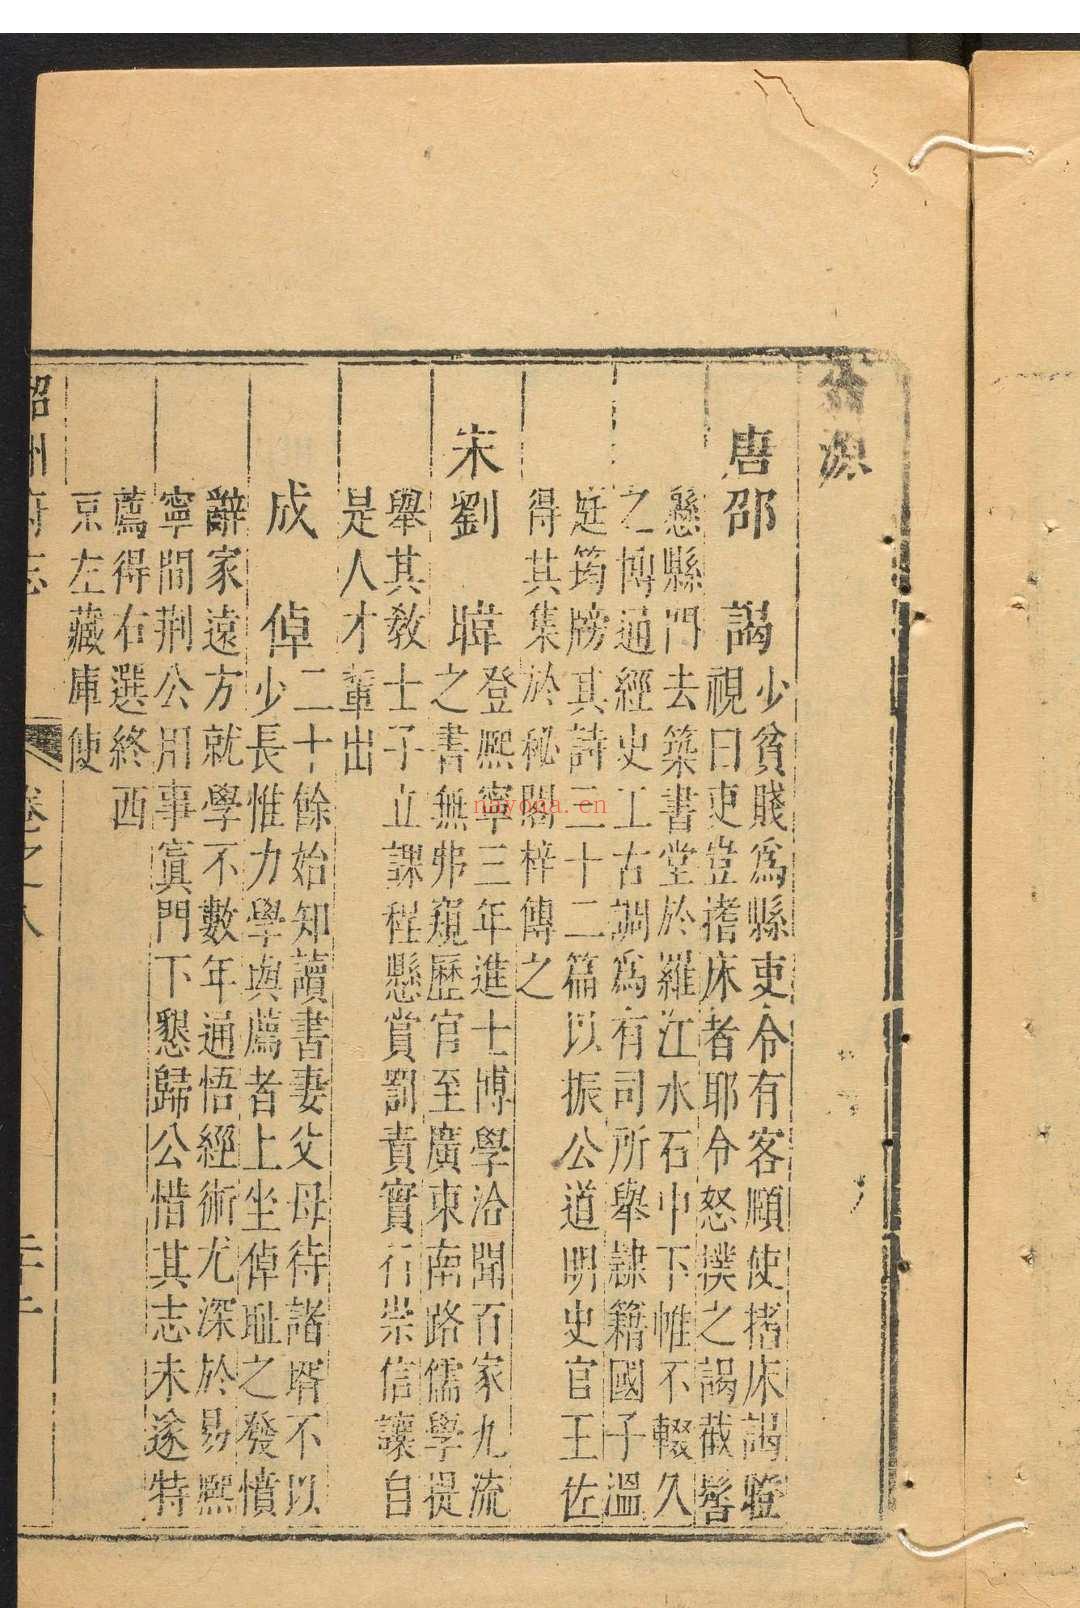 翁源
唐邵　謁少貧賤爲縣吏令有客願使搘床謁瞪
視曰吏豈搘床者耶令怒撲之謁截髻
懸縣門去築書堂於羅江水石中下帷不輟久
之博通經史工古調爲有司所舉隷籍國子溫
庭筠牓其詩三十二篇以振公道明史官王佐
得其集於秘閣梓傳之
宋劉　暐登熙寧三年進士博學洽聞百家九流
之書無弗窺歷官至廣東南路儒學提
舉其敎士子立課程懸賞罰責實行崇信讓自
是人才輩出
成　倬二十餘始知讀書妻父母待諸壻不以
少長惟力學與薦者上坐倬耻之發憤
辭家遠方就學不數年通悟經術尤深於易熙
寧間荆公用事寘門下懇歸公惜其志未遂特
薦得右選終西
京左藏庫使
韶州府志　卷之八
nayona.cn